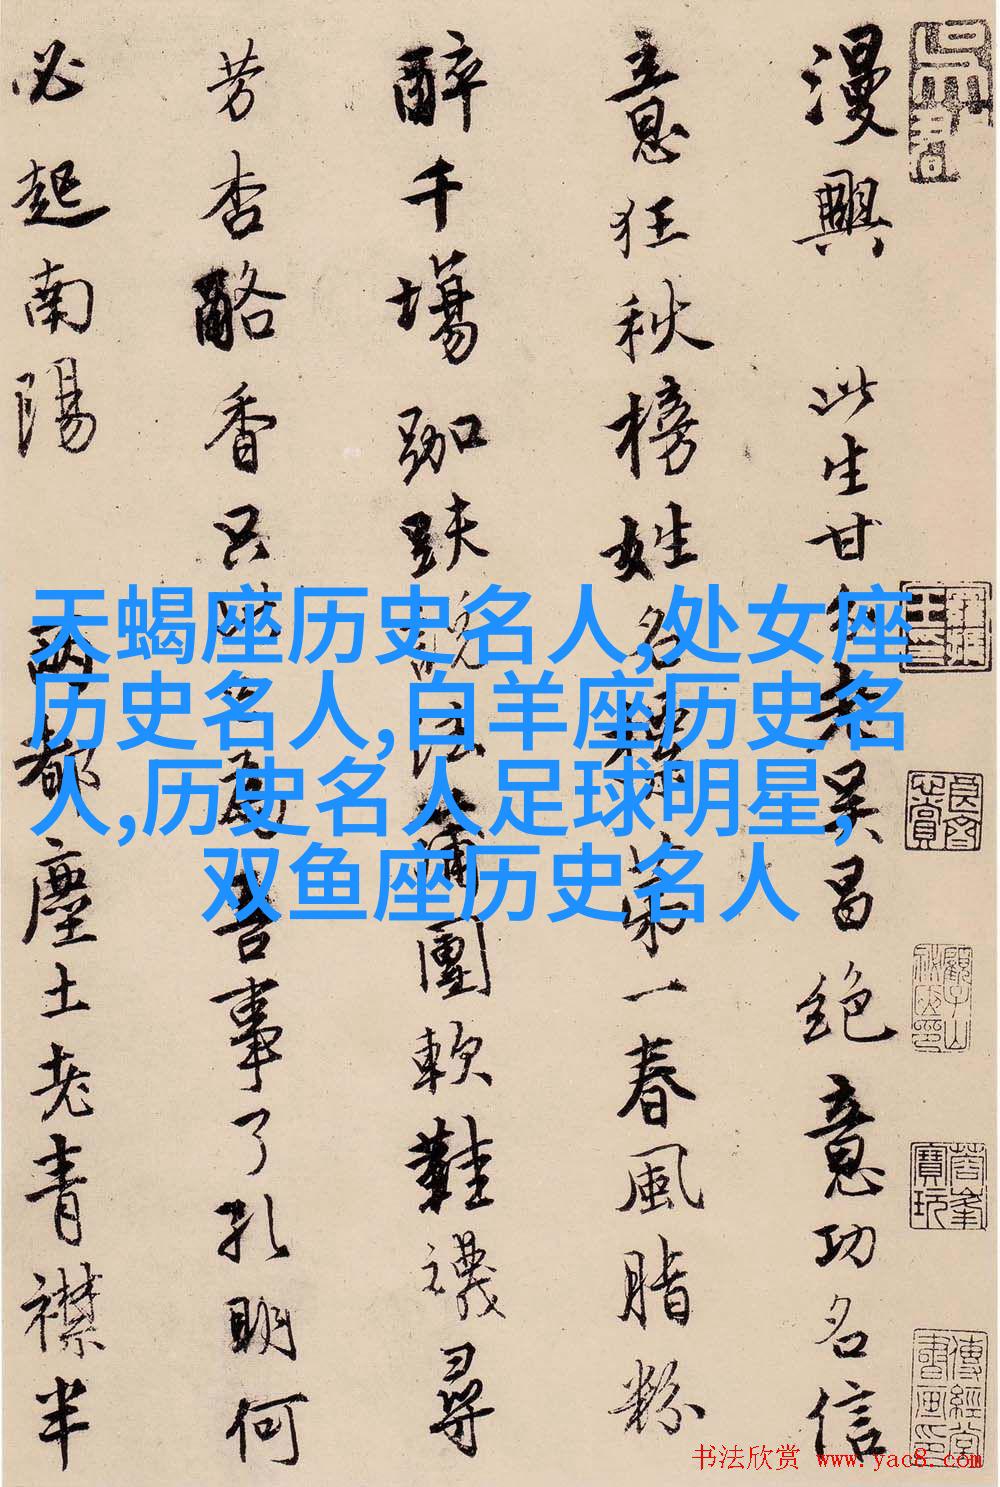 天蝎座历史名人,处女座
历史名人,白羊座历史名
人,历史名人足球明星,
双鱼座历史名人
漫興 此生甘老吳昌絕意功名信
意狂秋榜姓名第一春風脂粉
醉千場跏趺說法蒲團軟鞋襪尋
芳杏酪香只吾事了孔明何
必起南陽 兩都塵土老青襟半
书法欣赏 www.yac8.com